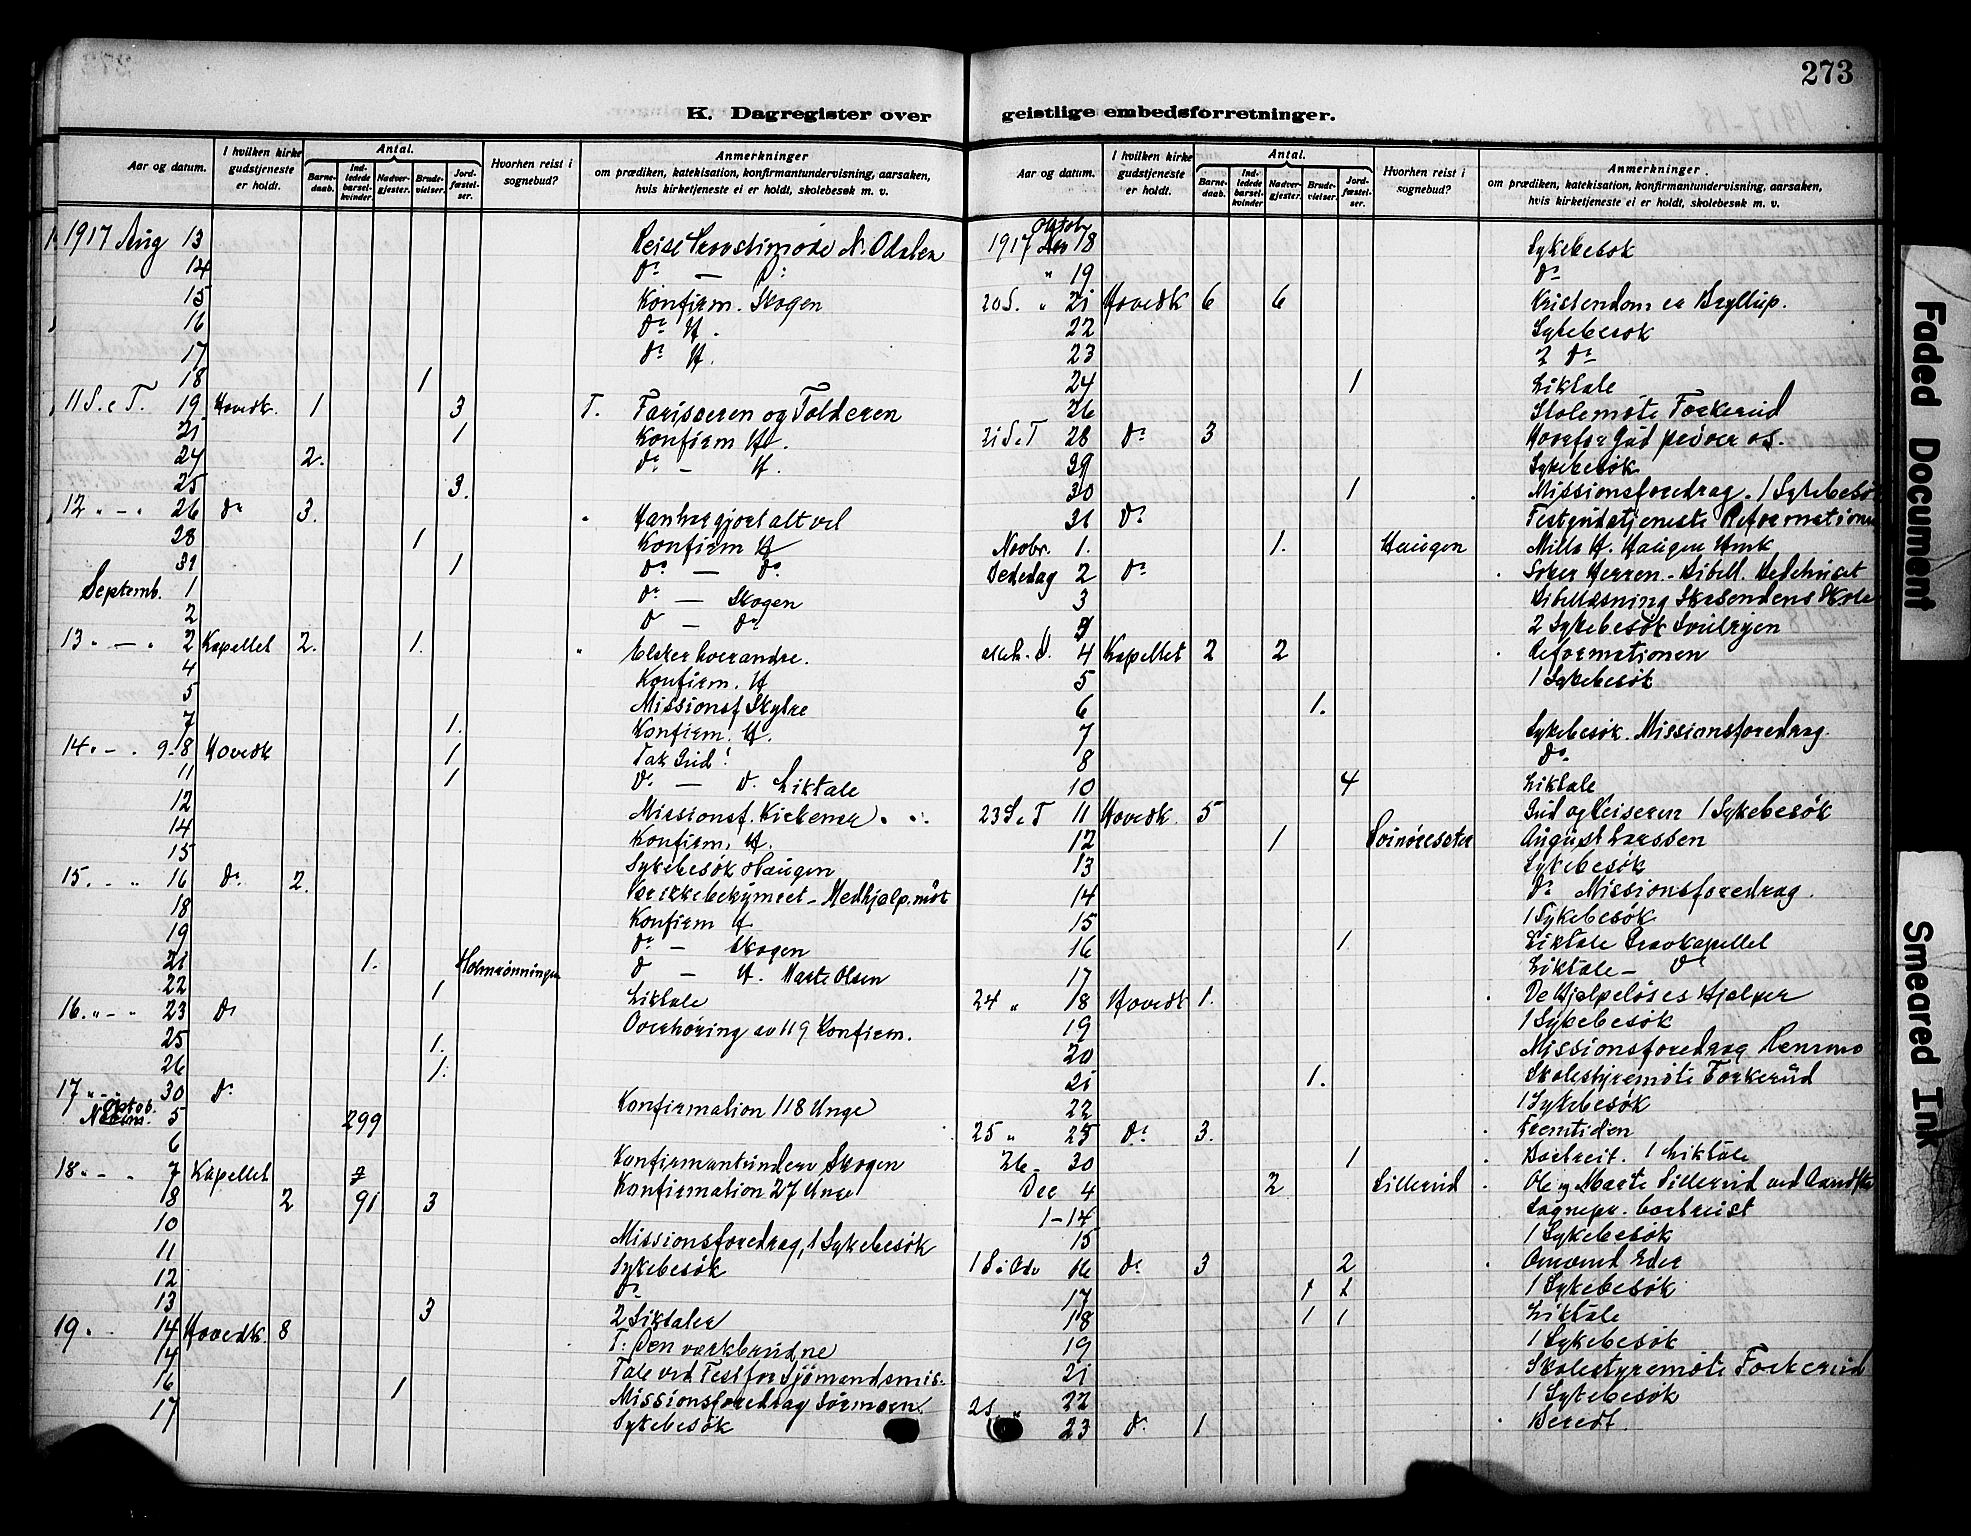 273
K. Dagregister over
Aar og datum. I hvilken kirke gudstjeneste er holdt. Antal. Barnedaab. Indledede barselkvinder. Nadvergjester. Brudevielser. Jordfæstelser. Hvorhen reist i sognebud? Anmerkninger om prædiken, katekisation, konfirmantundervisning, aarsaken, hvis kirketjeneste ei er holdt, skolebesøk m. v.
1917 Aug 13 Reise Provstimøde N. Odalen
14 Do — Do
15 Konfirm. Skogen
16 Do H.
17 Do H.
18 1
11 S. e T. 19 Hovedk. 1 3 T. Fariseeren og Tolderen
21 1 Konfirm H.
24 2. Do — H.
25 3.
12 " — " 26 Do 3. Han har gjort alt vel
28 1 Konfirm H
31 1 Do — Do
Septemb. 1 Do — Skogen
2 Do — Do
13 " — " 2 Kapellet 2. 1. Elsker hverandre.
4 Konfirm. H
5 Missionsf
7 1. Konfirm. H.
14 " — " 9-8 Hovedk 1 Tak Gud!
11 1 Do — Do Liktale
12 Missionsf.
14 Konfirm. H.
15 Sykebesøk Haugen
15. " " 16 Do 2. Vær ikke bekymret — Medhjelp.møt
18 Konfirm H
19 Do — Skogen
21 1. Holmrønningen Do — H. Marte Olsen
22 1 Liktale
16. " — " 23 Do Overhøring av 119 Konfirm.
25 1.
26 1.
17 " — " 30 Do Konfirmation 118 Unge
Oktob. 5 299
6 Konfirmantunderv Skogen
18 " — " 7 Kapellet 7 Konfirmation 27 Unge
18 2 91 3
10 Missionsforedrag, 1 Sykebesøk
11 Sykebesøk
12 Do
13 3 2 Liktaler
19 " 14 Hovedk 8 T: Den værkbrudne
14 Tale ved Fest for Sjömandsmis.
16 1 Missionsforedrag
17 Sykebesøk
geistlige embedsforretninger.
Aar og datum. I hvilken kirke gudstjeneste er holdt. Antal. Barnedaab. Indledede barselkvinder. Nadvergjester. Brudevielser. Jordfæstelser. Hvorhen reist i sognebud? Anmerkninger. om prædiken, katekisation, konfirmantundervisning, aarsaken, hvis kirketjeneste ei er holdt, skolebesøk m. v.
Oktob
1917 18 Sykebesøk
" 19 Do
20 S. " 21 Hovedk 6 6 Kristendom er Bryllup.
22 Sykebesøk
23 2 Do
24 1 Liktale
26 Skolemøte Forkerud
21 S e T 28 Do 3 Hvorfor Gud prøver os.
29 Sykebesøk
30 1 Missionsforedrag. 1 Sykebesøk
31 Do Festgudstjeneste Reformationen
Novbr. 1. 1. Haugen H. Haugen
Bededag 2 Do Søker Herren - Bibell. Bedehuset
3 Bibellæsning Skole
3 2 Sykebesøk
S. 4 Kapellet 2 2 Reformationen
5 1 Sykebesøk
6 1.
7 Sykebesøk. Missionsforedrag.
8 Do
10 4 Liktale
23 S e T 11 Hovedk. 5 Gud og Keiseren 1 Sykebesök
12 1 August Larssen
13 Sykebesök
14 Do Missionsforedrag.
15 1 Sykebesök
16 1. Liktale Gravkapellet
17 Liktale — Do
24 " 18 Hovedk 1. De Hjælpeløses Hjelper
19 1 Sykebesök
20 Missionsforedrag
21 1. Skolestyremöte Forkerud
22 1 Sykebesøk
25 " 25 Do 3. Fremtiden
26 - 30 1 Bortreist. 1 Liktale
Dec 4 2 Lillerud Ole og Marte Lillerud ved
1-14 Sognepr. bortreist
15 1 Sykebesök
1 S. i Adv 16 Do 3 2 Omvend Eder
17 1 1 1 Sykebesøk
18 1 1 Liktale
19 1 Sykebesøk
21 Skolestyremöte Forkerud
22 1 Sykebesøk
23 Do 1 Beredt.
Faded Document
Smeared Ink